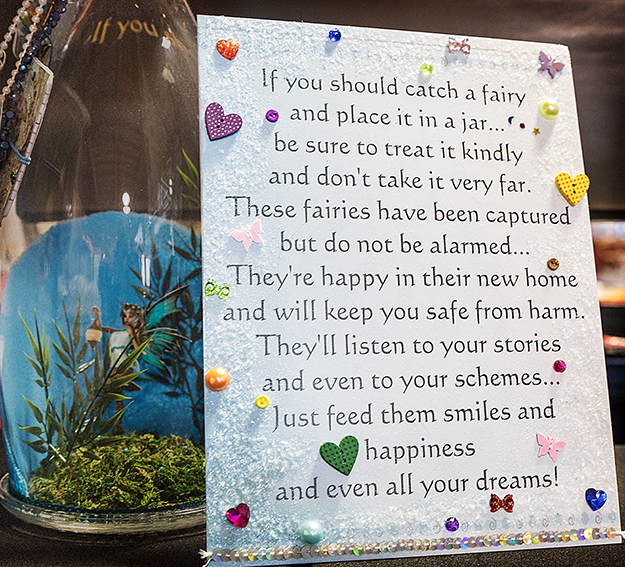 If you
If you should catch a fairy
and place it in a jar...
be sure to treat it kindly
and don't take it very far.
These fairies have been captured
but do not be alarmed...
They're happy in their new home
and will keep you safe from harm.
They'll listen to your stories
and even to your schemes...
Just feed them smiles and
happiness
and even all your dreams!